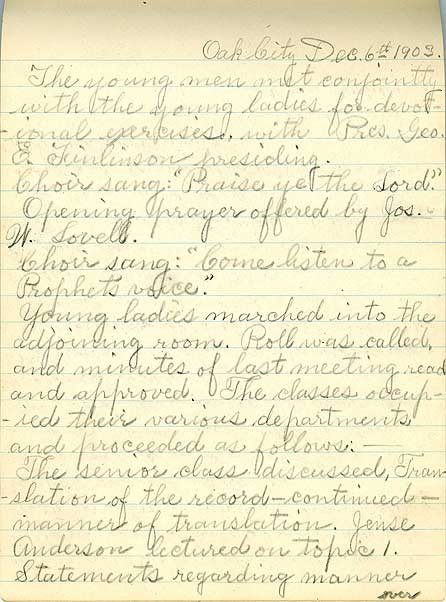 Oak City Dec. 6th 1903.
The young men met conjointly
with the young ladies for devot-
-ional exercises, with Pres. Geo.
E. Finlinson presiding.
Choir sang: "Praise ye the Lord."
Opening prayer offered by Jos.
W. Lovell.
Choir sang: "Come listen to a
Prophet's voice".
Young ladies marched into the
adjoining room. Roll was called,
and minutes of last meeting read
and approved. The classes occup-
-ied their various departments
and proceeded as follows: —
The senior class discussed, Tran-
-slation of the record—continued—
manner of translation. Jense
Anderson lectured on topic 1.
Statements regarding manner
over